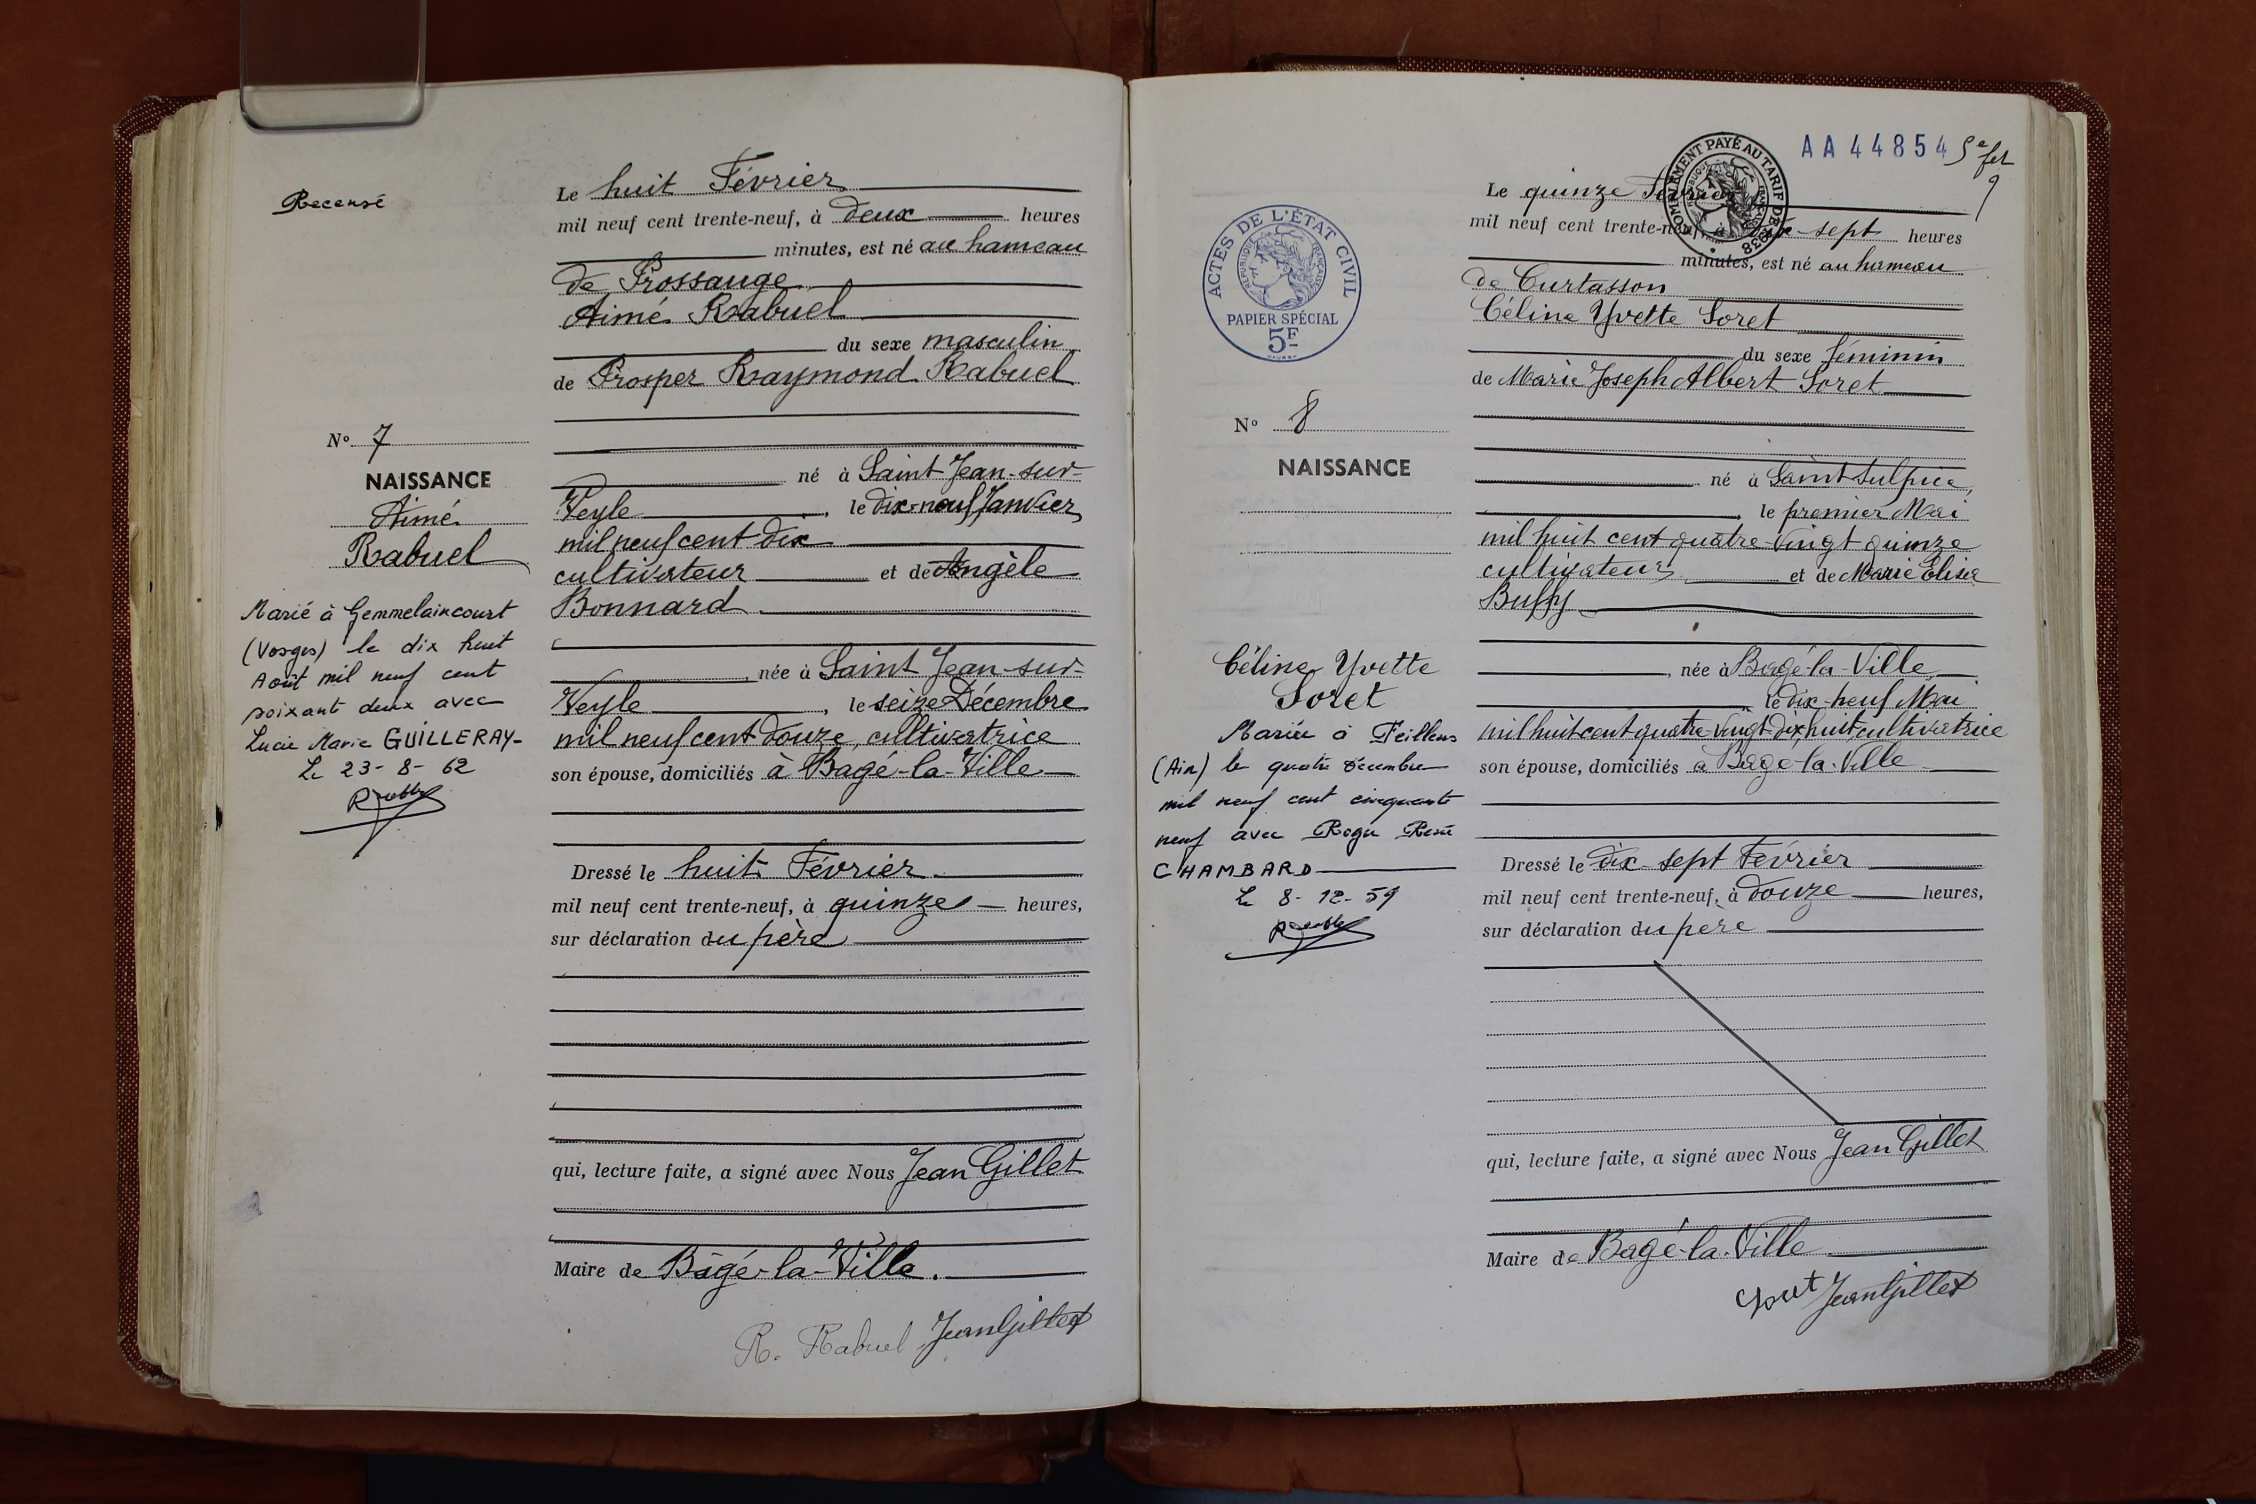 Recensé
Le huit Février
mil neuf cent trente-neuf, à deux heures
minutes, est né au hameau
de Prossange
Aimé Rabuel
du sexe masculin
de Prosper Raymond Rabuel
né à Saint Jean-sur-
Veyle, le dix-neuf Janvier
mil neuf cent dix
cultivateur et de Angèle
Bonnard
née à Saint Jean-sur-
Veyle, le seize Décembre
mil neuf cent douze, cultivatrice
son épouse, domiciliés à Bagé-la-Ville
Dressé le huit Février
mil neuf cent trente-neuf, à quinze heures,
sur déclaration du père
qui, lecture faite, a signé avec Nous Jean Gillet
Maire de Bâgé-la-Ville.
R. Rabuel Jean Gillet
No 7
NAISSANCE
Aimé
Rabuel
Marié à Gemmelaincourt
(Vosges) le dix huit
Août mil neuf cent
soixant deux avec
Lucie Marie GUILLERAY-
Le 23-8-62
AA 44854
5e fet
9
COMPLÉMENT PAYÉ AU TARIF DE 1938
RÉPUBLIQUE FRANÇAISE
ACTES DE L'ÉTAT CIVIL
RÉPUBLIQUE FRANÇAISE
PAPIER SPÉCIAL
5F
Le quinze Février
mil neuf cent trente-neuf, à dix-sept heures
minutes, est né au hameau
de Curtasson
Céline Yvette Soret
du sexe féminin
de Marie Joseph Albert Soret
né à Saint Sulpice,
le premier Mai
mil huit cent quatre-vingt quinze
cultivateur, et de Marie Elisa
Buffy
, née à Bagé-la-Ville
le dix-neuf Mai
mil huit cent quatre vingt dix huit cultivatrice
son épouse, domiciliés à Bagé-la-Ville
Dressé le dix-sept Février
mil neuf cent trente-neuf, à douze heures,
sur déclaration du père
qui, lecture faite, a signé avec Nous Jean Gillet
Maire de Bagé-la-Ville
Jean Gillet
No 8
NAISSANCE
Céline Yvette
Soret
Mariée à Feillens
(Ain) le quatre décembre
mil neuf cent cinquante
neuf avec Roger René
CHAMBARD
Le 8-12-59